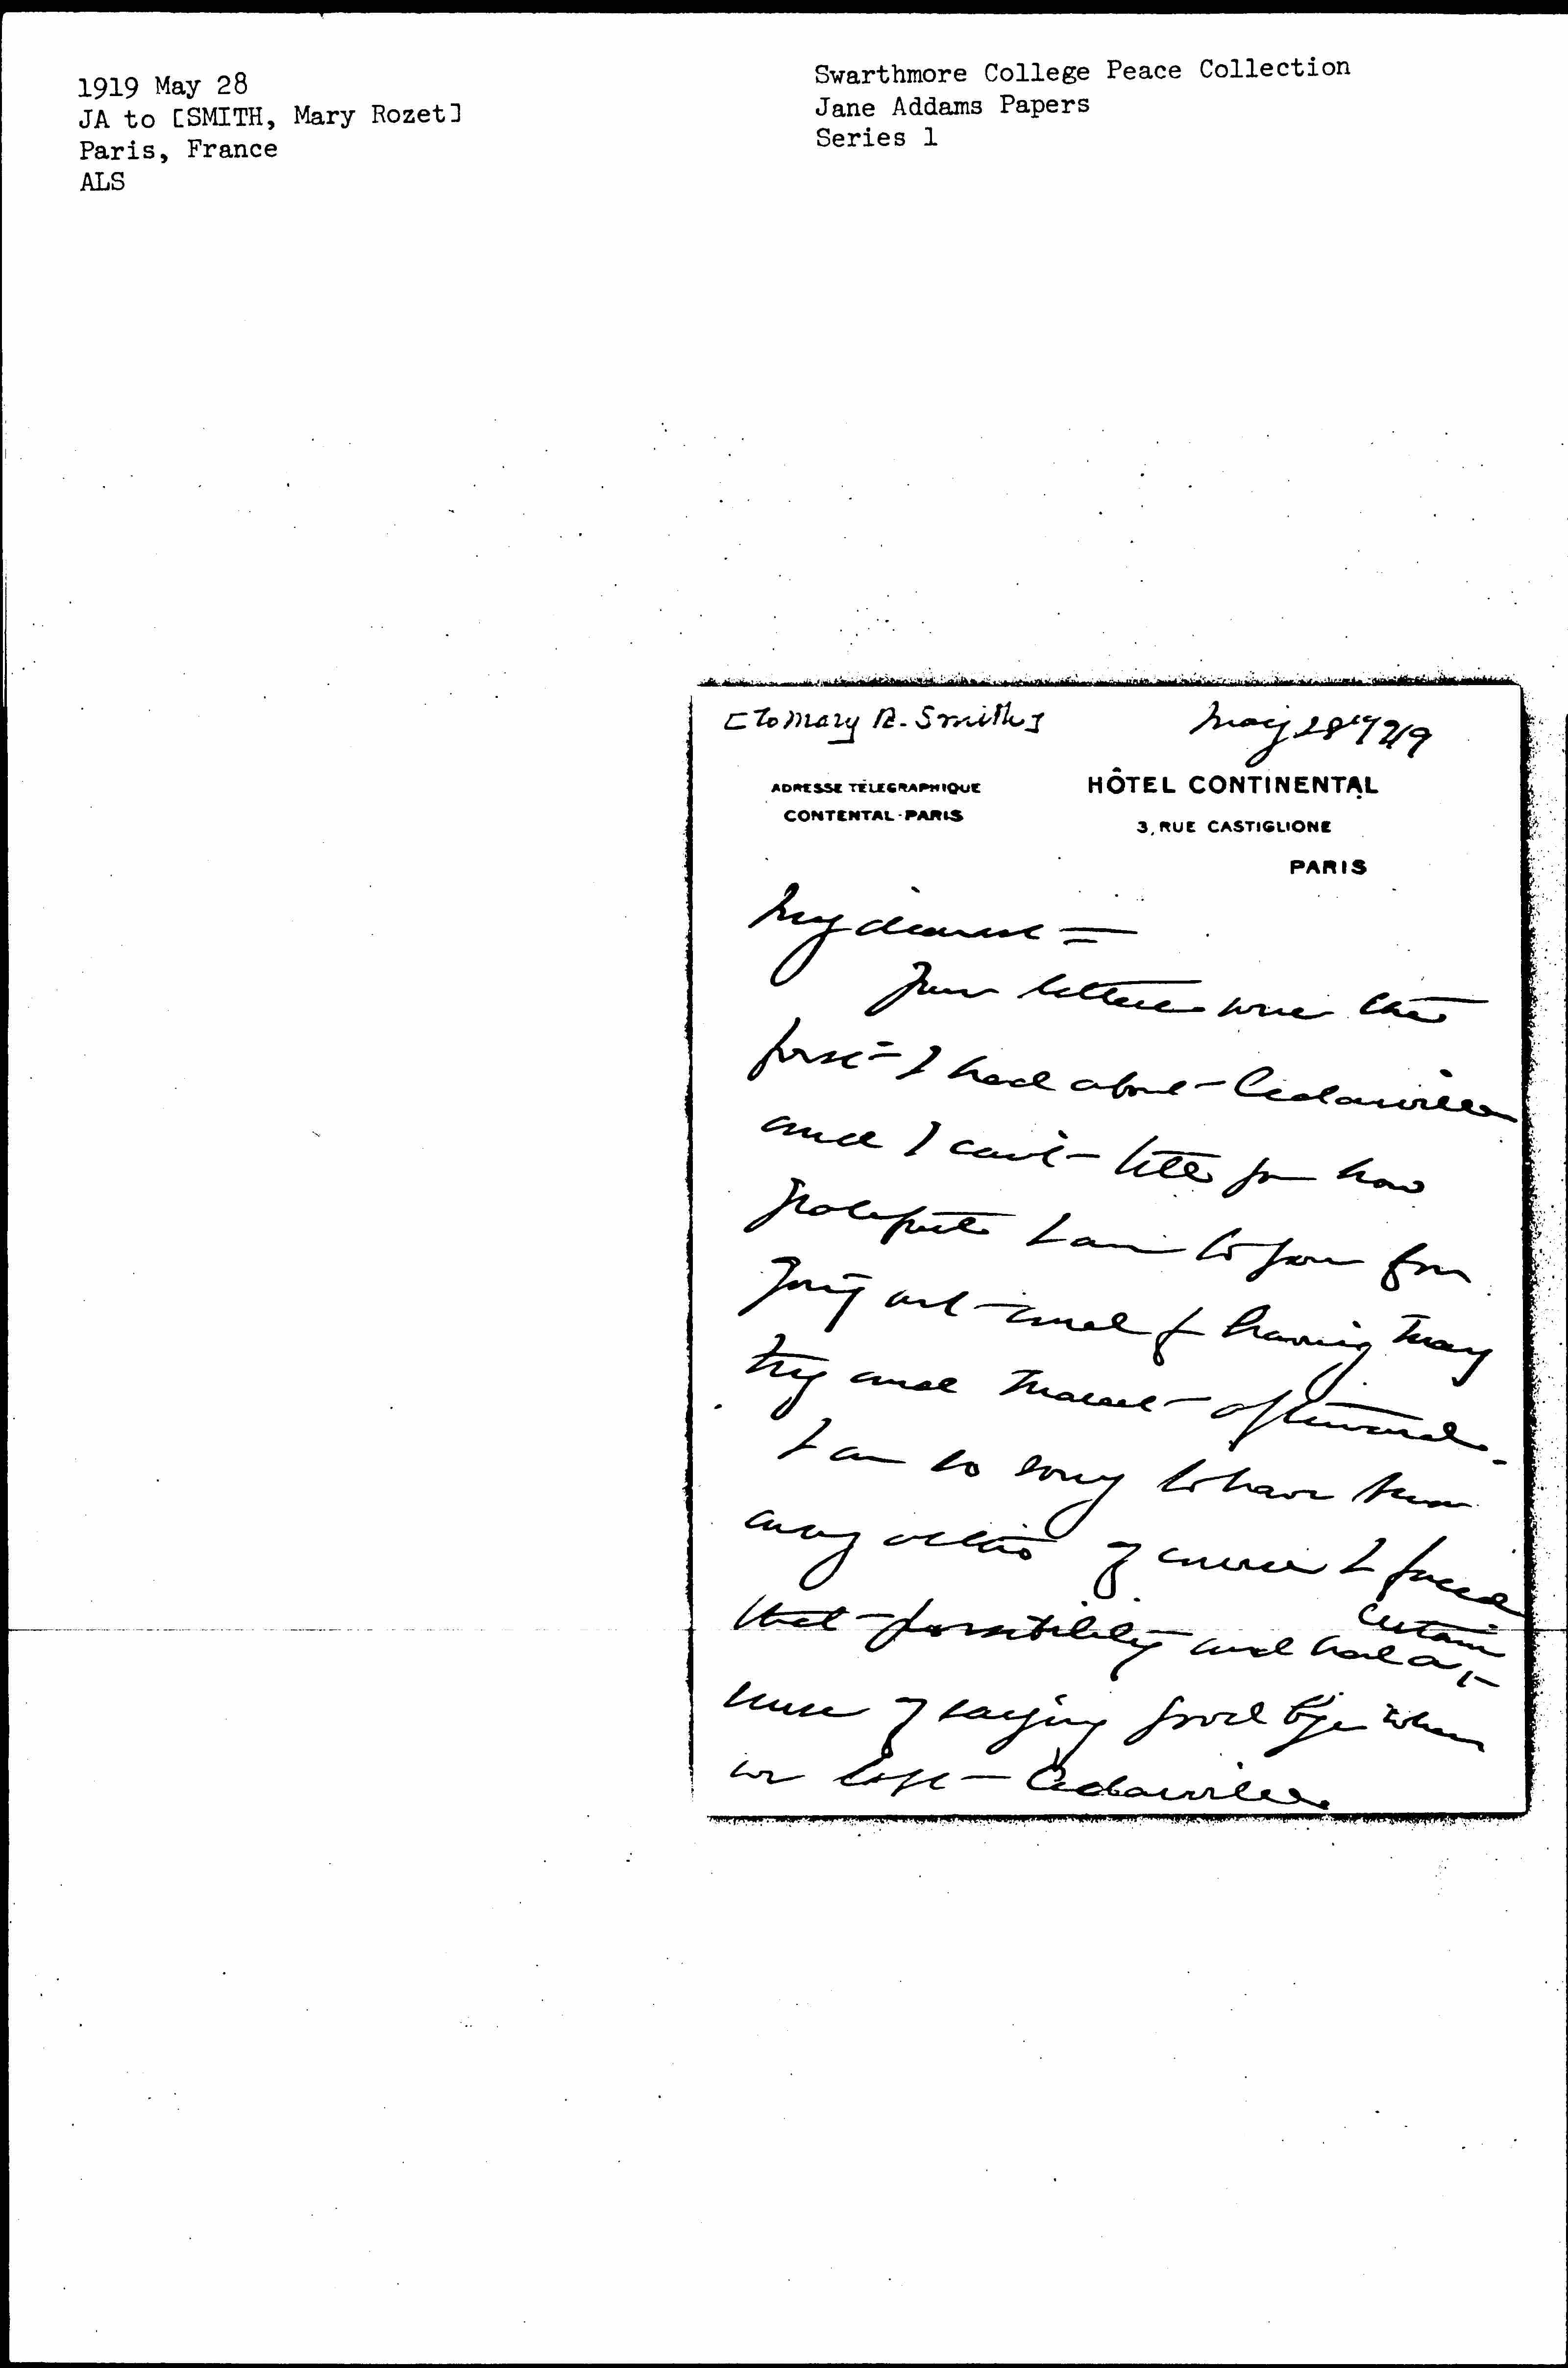 1919 May 28
JA to [SMITH, Mary Rozet]
Paris, France
ALS
Swarthmore College Peace Collection
Jane Addams Papers
Series 1
[To Mary R. Smith]
May 28" 1919
ADRESSE TÉLÉGRAPHIQUE
CONTENTAL-PARIS
HÔTEL CONTINENTAL
3, RUE CASTIGLIONE
PARIS
My dearest =
Your letters were the
first I had about Cedarville
and I can't tell you how
grateful I am to you for
going out and for having Mary
try and Marcet afterward.
I am so sorry to have been
away altho of course I faced
that possibility and had a certain
sense of saying good bye when
we left Cedarville.